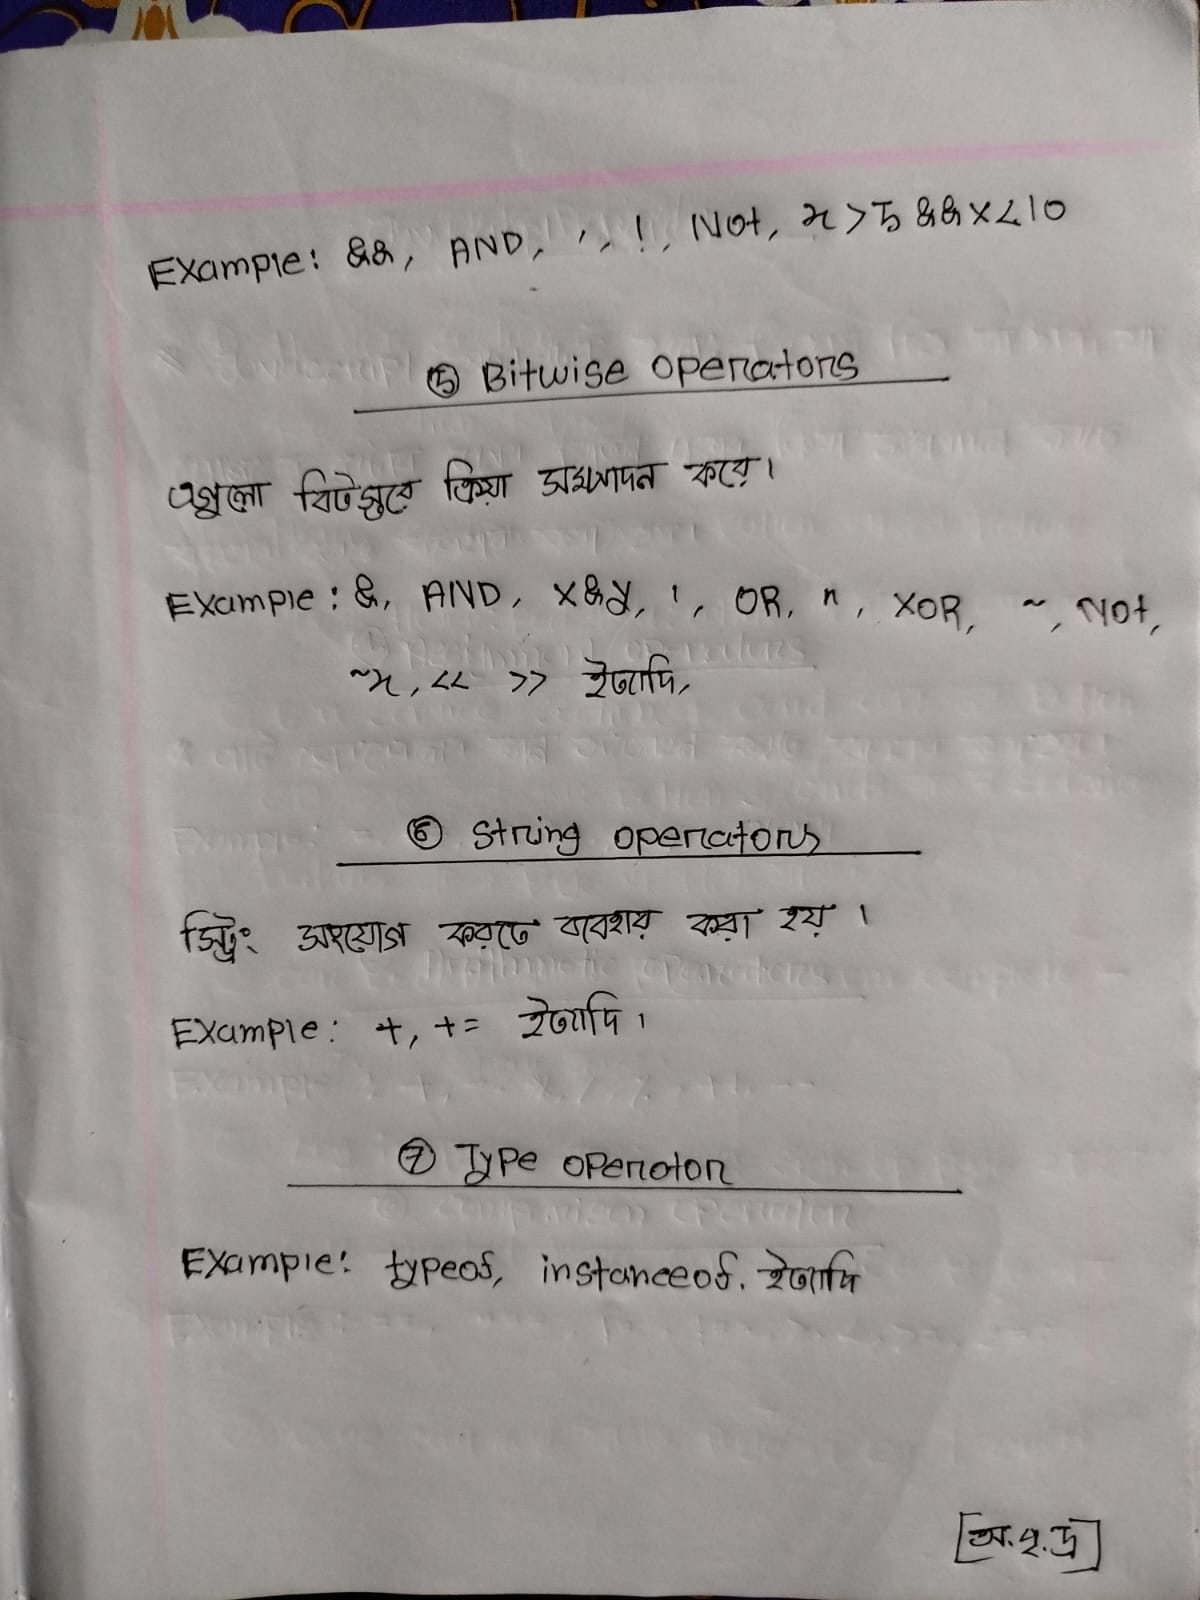 Example: &&, AND, ', !, Not, x > 5 && x < 10
⑤ Bitwise operators
এগুলো বিটস্তরে ক্রিয়া সম্পাদন করে।
Example: &, AND, x & y, ', OR, n, XOR, ~, Not,
~x, << >> ইত্যাদি,
⑥ String operators
স্ট্রিং সংযোগ করতে ব্যবহার করা হয়।
Example: +, += ইত্যাদি।
⑦ Type operotor
Example: typeof, instanceof. ইত্যাদি
[অ.পৃ.দ্র]